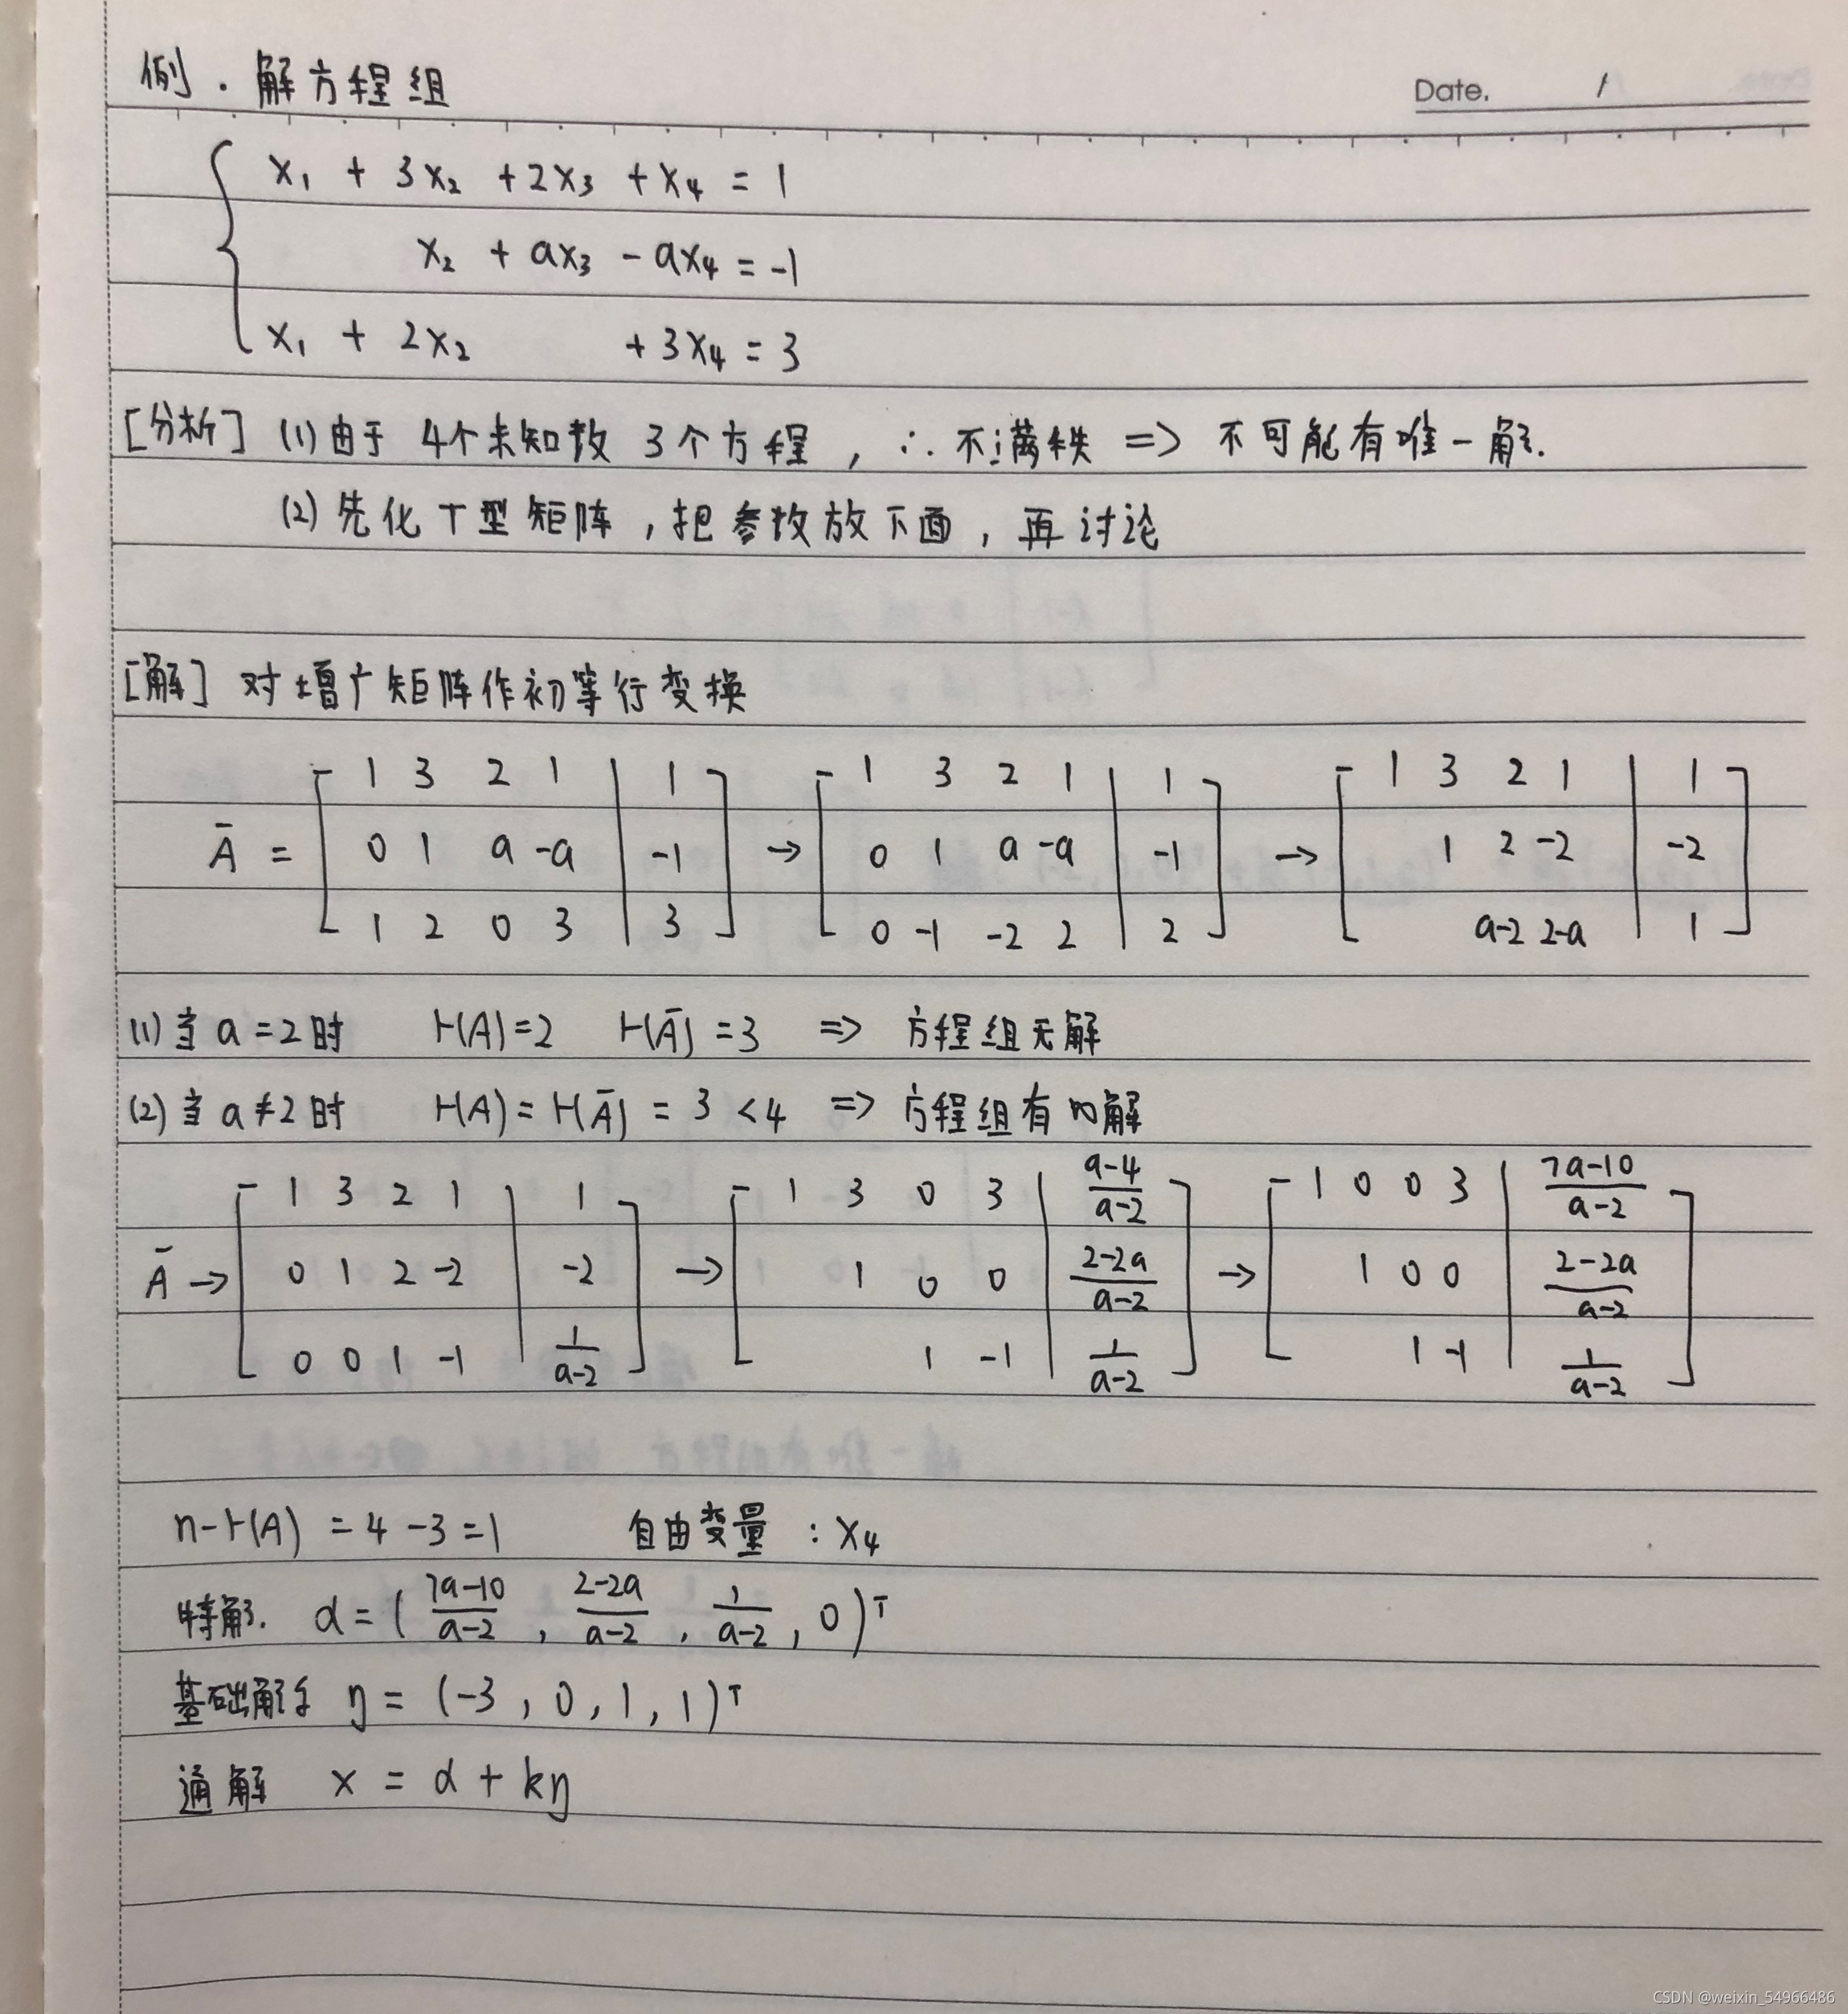 例．解方程组
Date. /
x₁ + 3x₂ + 2x₃ + x₄ = 1
x₂ + ax₃ - ax₄ = -1
x₁ + 2x₂ + 3x₄ = 3
[分析] (1) 由于 4个未知数 3个方程，∴不满秩 => 不可能有唯一解.
(2) 先化T型矩阵，把参数放下面，再讨论
[解] 对增广矩阵作初等行变换
Ā = [1 3 2 1 | 1; 0 1 a -a | -1; 1 2 0 3 | 3] → [1 3 2 1 | 1; 0 1 a -a | -1; 0 -1 -2 2 | 2] → [1 3 2 1 | 1; 1 2 -2 | -2; a-2 2-a | 1]
(1) 当 a=2时 r(A)=2 r(Ā)=3 => 方程组无解
(2) 当 a≠2时 r(A)=r(Ā)=3<4 => 方程组有∞解
Ā → [1 3 2 1 | 1; 0 1 2 -2 | -2; 0 0 1 -1 | 1/(a-2)] → [1 3 0 3 | (a-4)/(a-2); 1 0 0 | (2-2a)/(a-2); 1 -1 | 1/(a-2)] → [1 0 0 3 | (7a-10)/(a-2); 1 0 0 | (2-2a)/(a-2); 1 -1 | 1/(a-2)]
n-r(A) = 4-3=1 自由变量：x₄
特解. α=( (7a-10)/(a-2), (2-2a)/(a-2), 1/(a-2), 0)ᵀ
基础解系 η = (-3, 0, 1, 1)ᵀ
通解 x = α + kη
CSDN @weixin_54966486